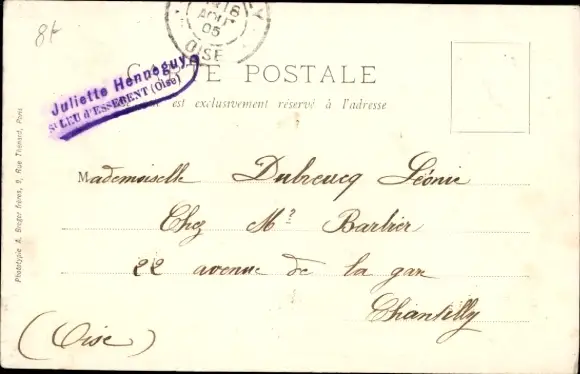 8f
16
AOUT
05
OISE
CARTE POSTALE
Juliette Henneguy
St LEU d'ESSERENT (Oise)
est exclusivement réservé à l'adresse
Phototypie A. Breger frères, 9, Rue Thénard, Paris
Mademoiselle Dubreucq Léonie
Chez Mr Barbier
22 avenue de la gare
Chantilly
(Oise)